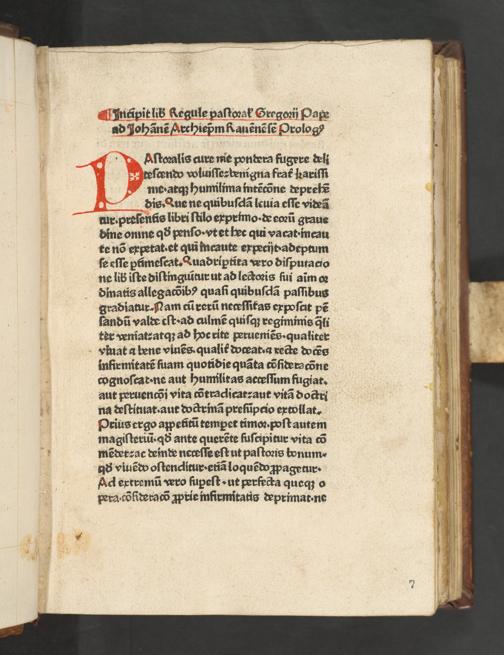 Incipit lib̄ Regule pastoral̕ Gregorij Pape
ad Joh̄anē Archiep̄m Rauēnēsē Prologꝰ
PAstoralis cure me pondera fugere deli
tescendo voluisse: benigna frāt karissi
me. atqꝫ humilima intēcōne dep̄rehē
dis. Que ne quibusdā leuia esse videā
tur. presentis libri stilo exprimo. de eorū graue
dine om̄ne qd̄ penso. vt et hec qui vacat. incau
te nō expetat. et qui incaute expecijt. adeptum
se esse ꝑtimescat. Quadriptita vero disputacio
ne lib̄ iste distinguitur ut ad lectoris sui aīm or
dinatis allegacōibꝫ quasi quibusdā passibus
gradiatur. Nam cū rerū necessitas exposcit pē
sandū valde est. ad culmē quisqꝫ regiminis q̄li
ter veniat: atqꝫ ad hoc rite perueniēs. qualiter
viuat et bene viuēs. qualit̄ doceat. et recte docēs
infirmitatē suam quotidie quāta cōsideracōne
cognoscat. ne aut humilitas accessum fugiat.
aut peruencōi vita cōtradicat: aut vitā doctri
na destituat. aut doctrinam presūpcio extollat.
Prius ergo appetitū temp̄et timor. post autem
magisteriū. qd̄ ante querēte suscipitur vita cō
mēdet: ac deinde necesse est ut pastoris bonum.
qd̄ viuēdo ostenditur. etiā loquēdo ꝓpagetur.
Ad extremū vero suꝑest. ut perfecta queqꝫ o
pera. cōsideracō ꝓprie infirmitatis deprimat. ne
7